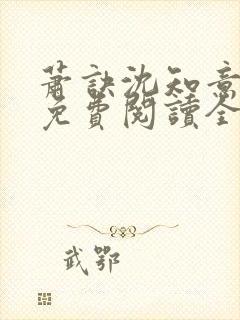 蕭訣沈知意
免費閱讀全
武鄂